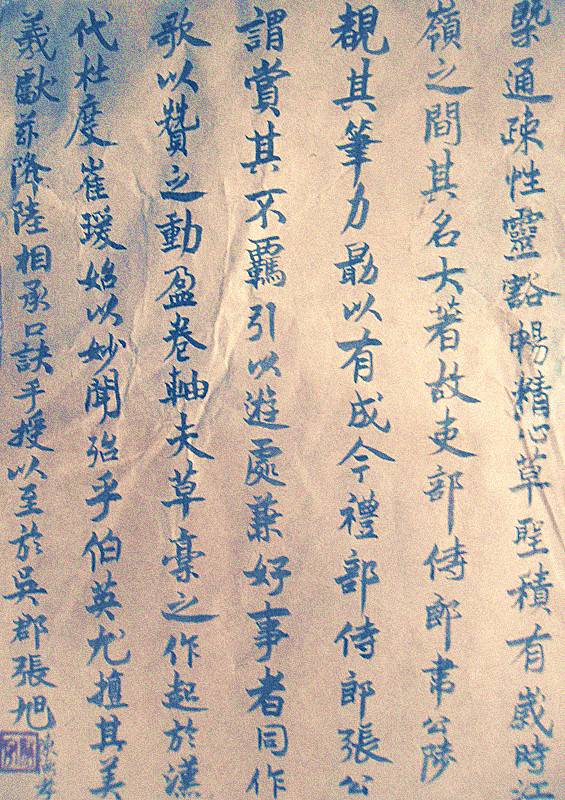 槩通疎性靈豁暢精心草聖積有歲時江
嶺之間其名大著故吏部侍郎韋公陟
覩其筆力勗以有成今禮部侍郎張公
謂賞其不羈引以遊處兼好事者同作
歌以贊之動盈卷軸夫草稾之作起於漢
代杜度崔瑗始以妙聞殆乎伯英尤擅其美
羲獻茲降陸相承口訣手授以至於吳郡張旭